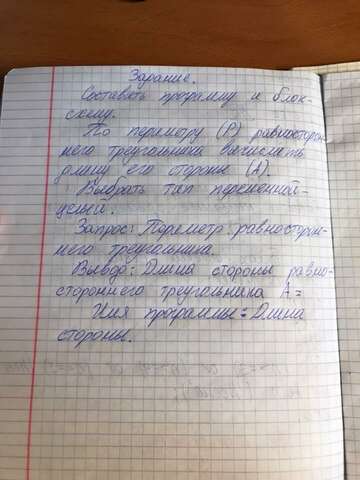 Задание.
Составить программу и блок-
схему.
По периметру (P) равносторон-
него треугольника вычислить
длину его стороны (A).
Выбрать тип переменной-
целый.
Запрос: Периметр равносторон-
него треугольника.
Вывод: Длина стороны равно-
стороннего треугольника A=
Имя программы: Длина
стороны.